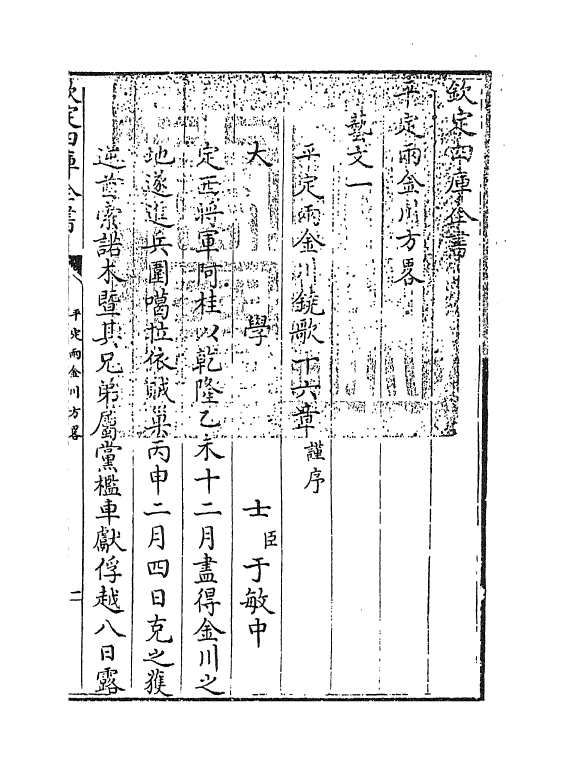 欽定四庫全書
平定兩金川方畧
藝文一
平定兩金川鐃歌十六章謹序
大學士臣于敏中
定西將軍阿桂以乾隆乙未十二月盡得金川之
地遂進兵圍噶拉依賊巢丙申二月四日克之獲
逆酋索諾木暨其兄弟屬黨檻車獻俘越八日露
欽定四庫全書
平定兩金川方畧
二